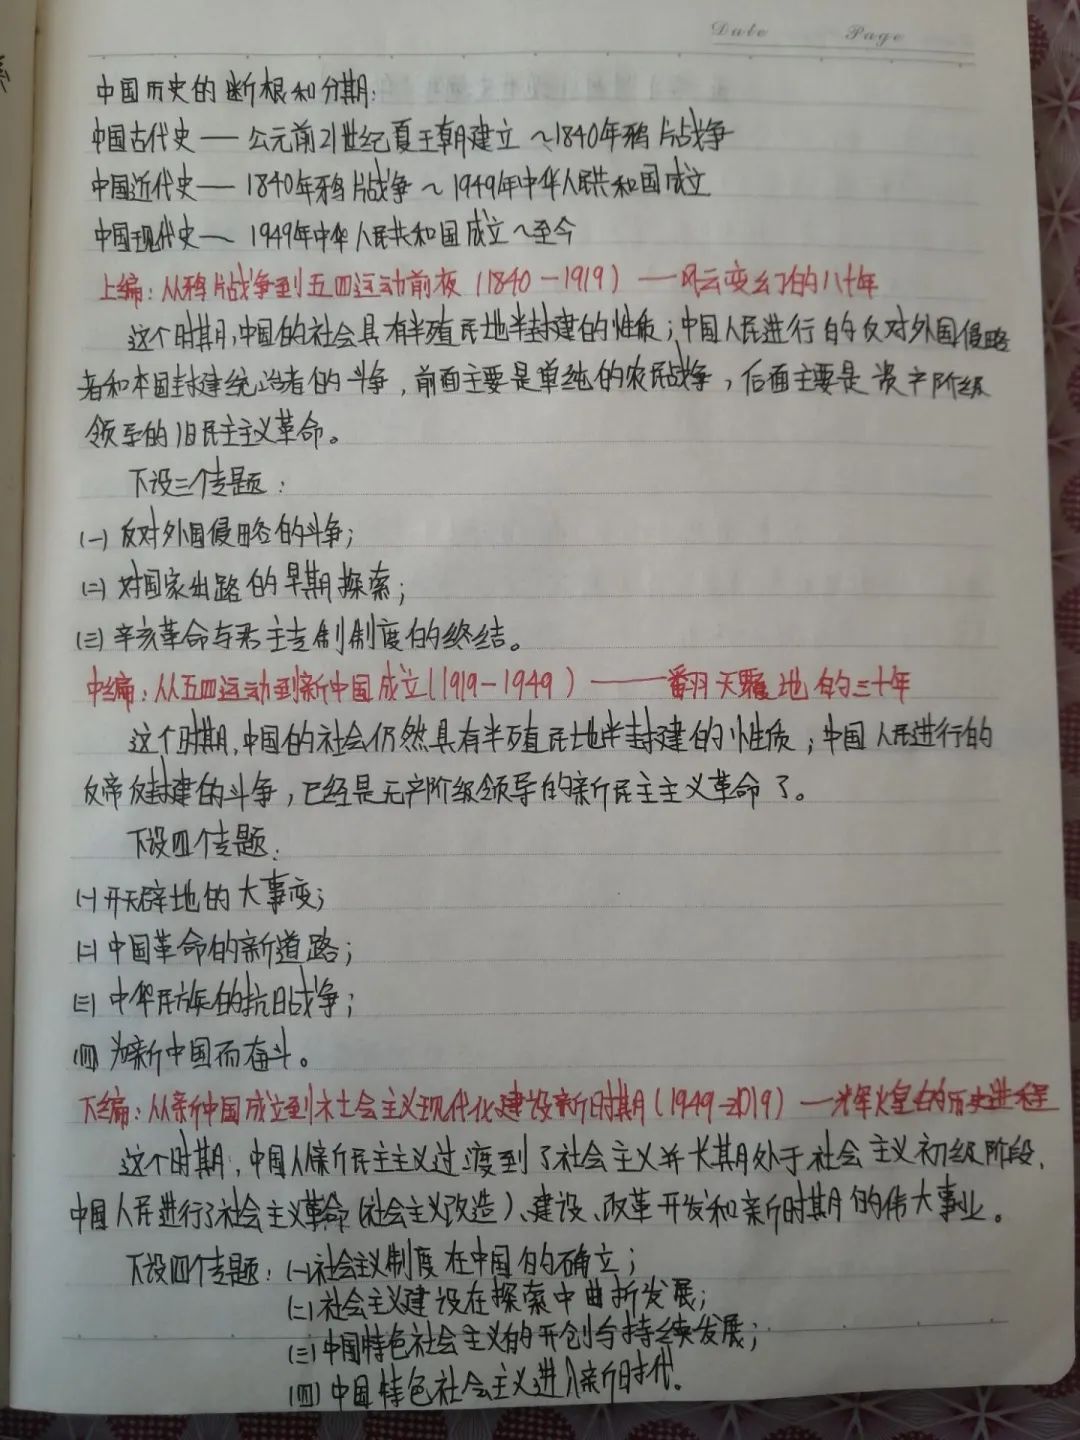 Date Page
中国历史的断根和分期:
中国古代史——公元前21世纪夏王朝建立~1840年鸦片战争
中国近代史——1840年鸦片战争~1949年中华人民共和国成立
中国现代史——1949年中华人民共和国成立~至今
上编:从鸦片战争到五四运动前夜(1840-1919)——风云变幻的八十年
这个时期,中国的社会具有半殖民地半封建的性质;中国人民进行的反对外国侵略
者和本国封建统治者的斗争,前面主要是单纯的农民战争,后面主要是资产阶级
领导的旧民主主义革命。
下设三个专题:
(一)反对外国侵略的斗争;
(二)对国家出路的早期探索;
(三)辛亥革命与君主专制制度的终结。
中编:从五四运动到新中国成立(1919-1949)——翻天覆地的三十年
这个时期,中国的社会仍然具有半殖民地半封建的性质;中国人民进行的
反帝反封建的斗争,已经是无产阶级领导的新民主主义革命了。
下设四个专题:
(一)开天辟地的大事变;
(二)中国革命的新道路;
(三)中华民族的抗日战争;
(四)为新中国而奋斗。
下编:从新中国成立到社会主义现代化建设新时期(1949-2019)——光辉火皇的历史进程
这个时期,中国从新民主主义过渡到了社会主义并长期处于社会主义初级阶段,
中国人民进行了社会主义革命(社会主义改造)、建设、改革开发和新时期的伟大事业。
下设四个专题:(一)社会主义制度在中国的确立;
(二)社会主义建设在探索中曲折发展;
(三)中国特色社会主义的开创与持续发展;
(四)中国特色社会主义进入新时代。